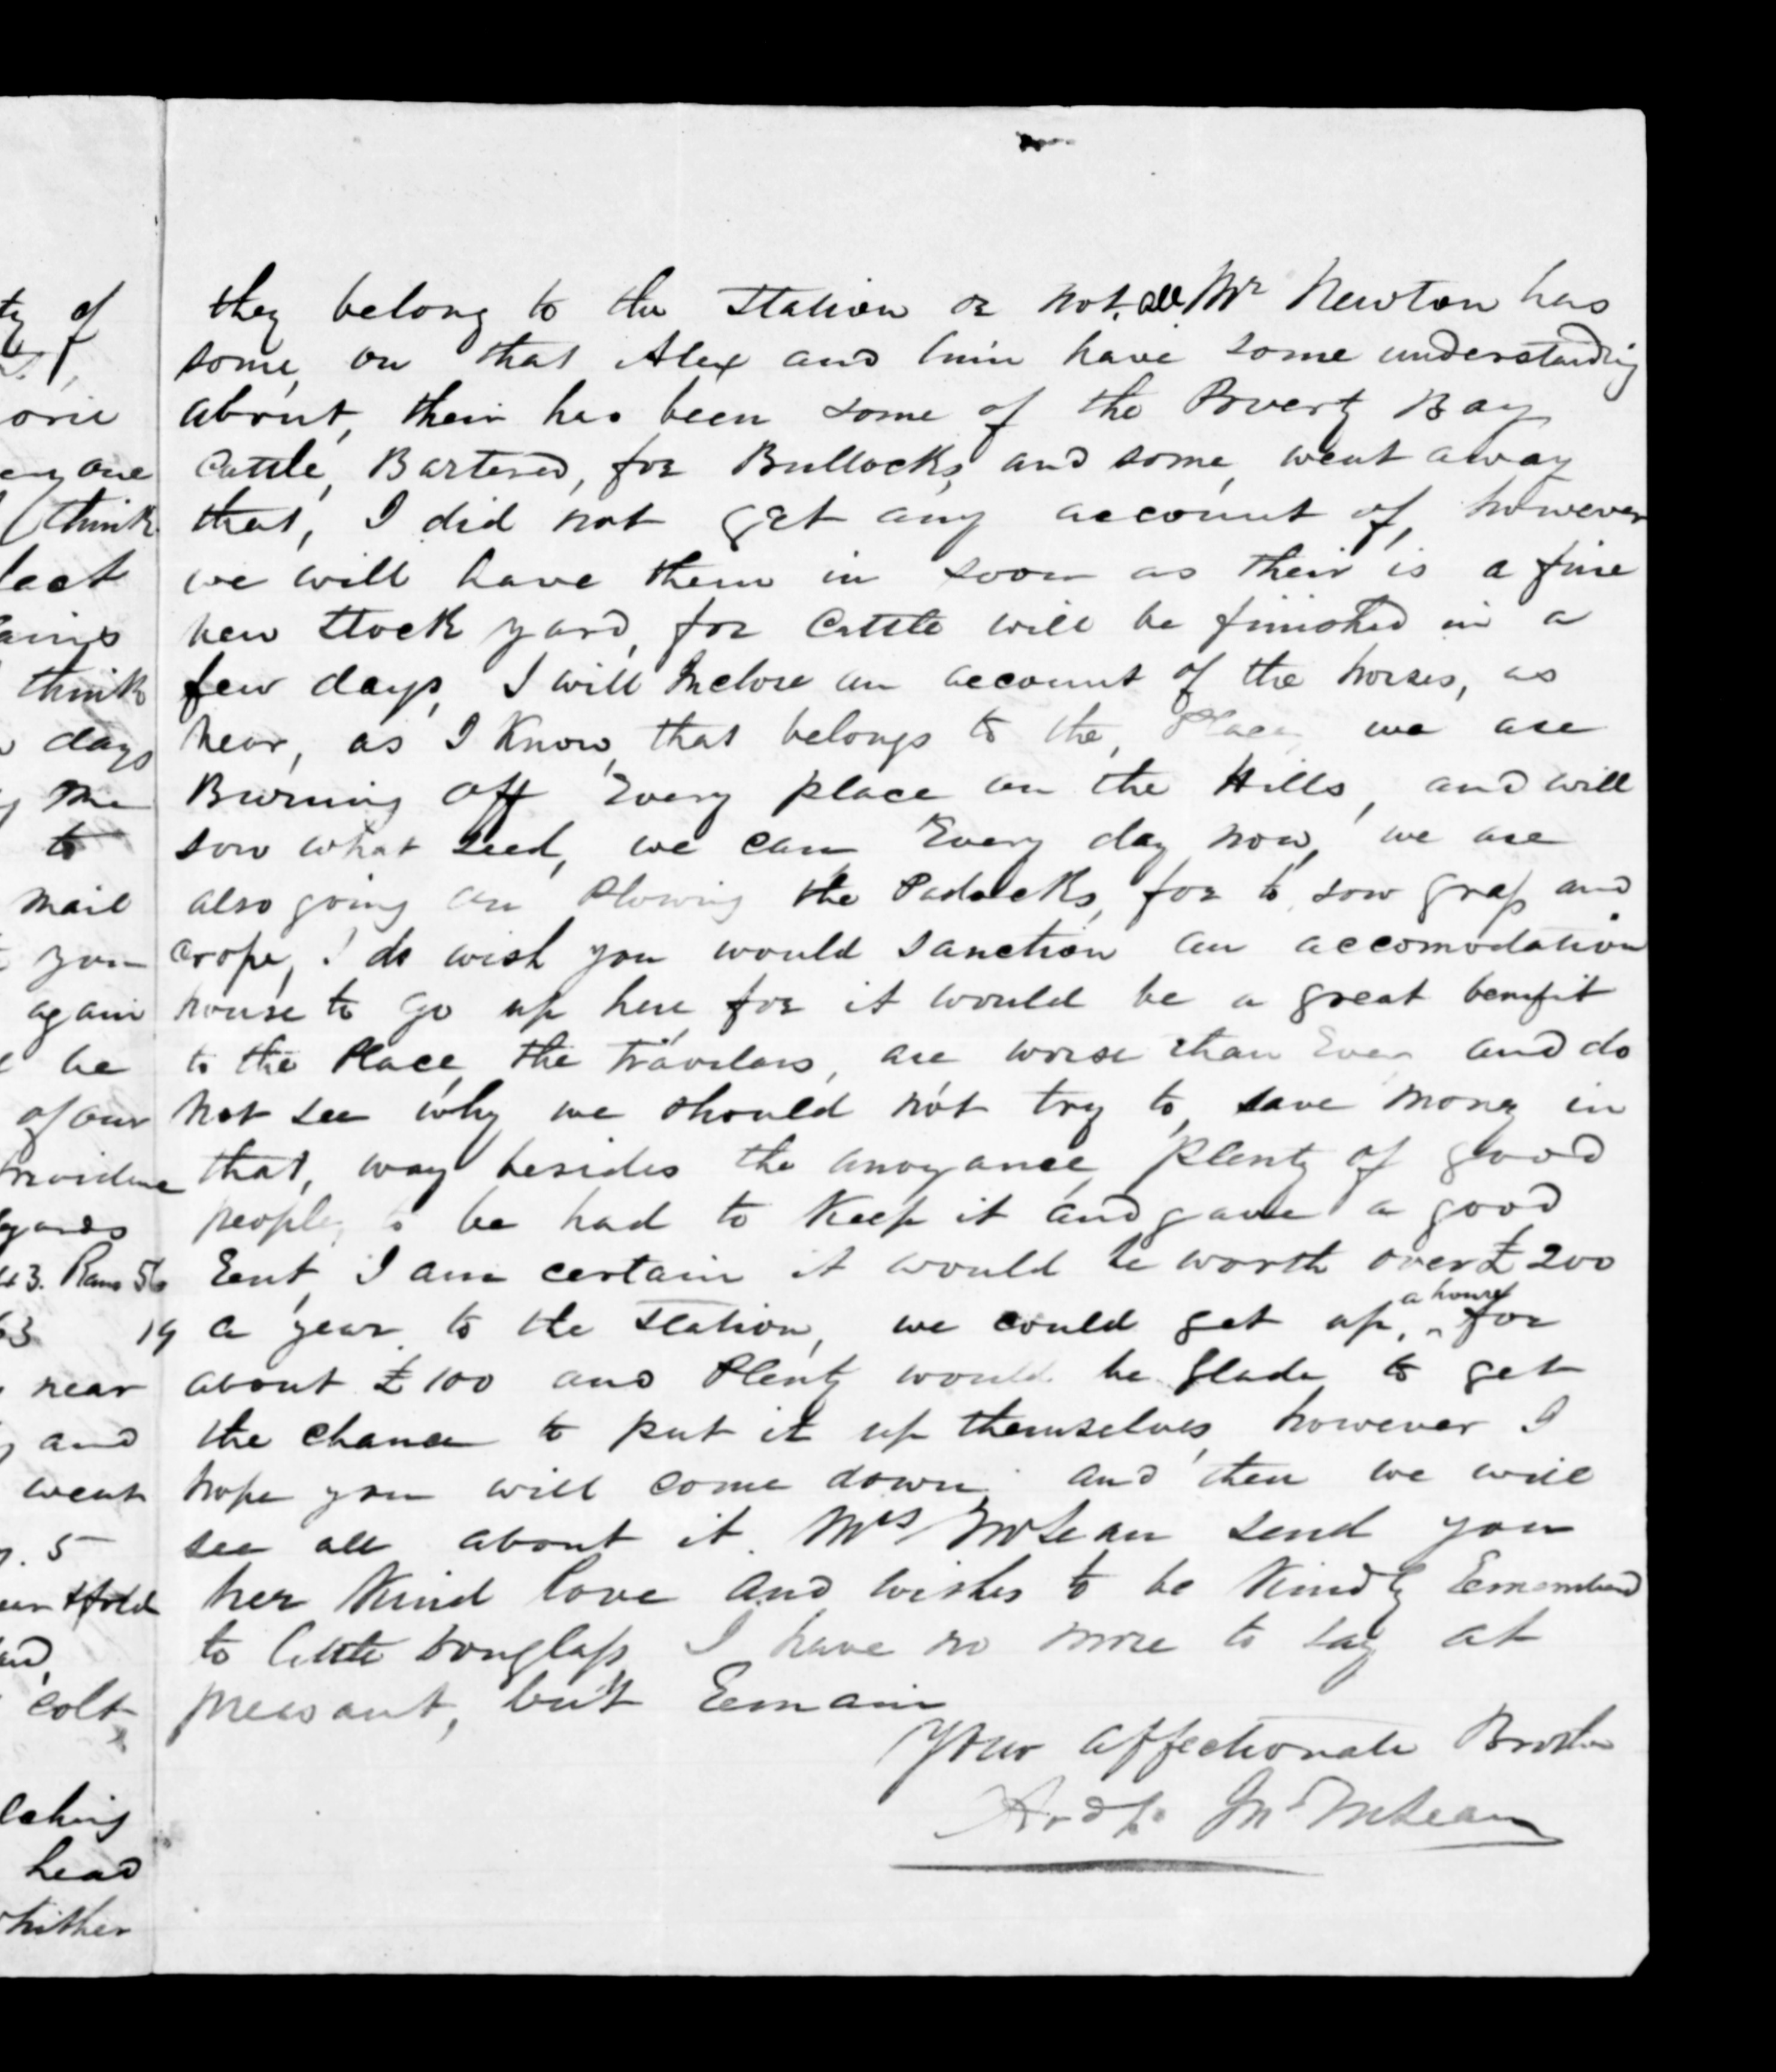 they belong to the Station or not. Mr Newton has
some, on that Alex and him have some understanding
about, their has been some of the Poverty Bay
Cattle, Bartered, for Bullocks, and some, went away
that, I did not get any account of, however
we will have them in soon as their is a fine
new Stock yard, for Cattle will be finished in a
few days, I will Inclose an account of the horses, as
near, as I Know, that belongs to the, Place, we are
Burning off Every place on the Hills, and will
sow what seed, we can Every day now, we are
also going on Plowing the Padocks, for to, sow grass and
crops, I do wish you would sanction an accomodation
house to go up here for it would be a great benefit
to the Place, the Travelars, are worse than Ever and do
not see why we should not try to, save money in
that, way besides the anoyance, plenty of good
people, to be had to Keep it and gave a good
Rent, I am certain it would be worth over £200
a year to the Station, we could get up, a house for
about £100 and Plenty would be glade to get
the chance to put it up themselves, however I
hope you will come down and then we will
see all about it. Mrs McLean send you
her Kind love and wishes to be Kindly Remembered
to little Douglass I have no more to say at
preasant, but Remain
Your affectionate Brother
Archd. Jn McLean
ty of
any one
think
think
days
me
to
mail
you
again
be
of our
yards
43. Rams 56
63 19
near
and
went
5
colt
head